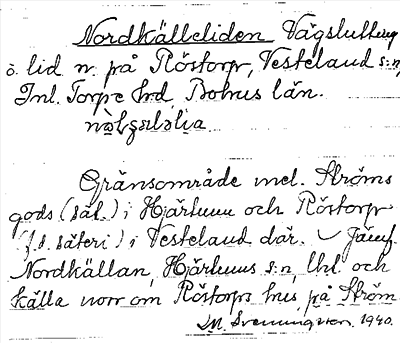 Nordkälleliden Vägsluttning
o. lid n. på Röstorp, Vesteland s:n,
Inl. Torpe hd, Bohus län.
Gränsområde mel. Ströms
gods (sät.) i Hjärtum och Röstorp
(f.d. säteri) i Vesteland där. Jämf.
Nordkällan, Hjärtums s:n, lht. och
källa norr om Röstorps hus på Ström
M. Svenungsson. 1940.